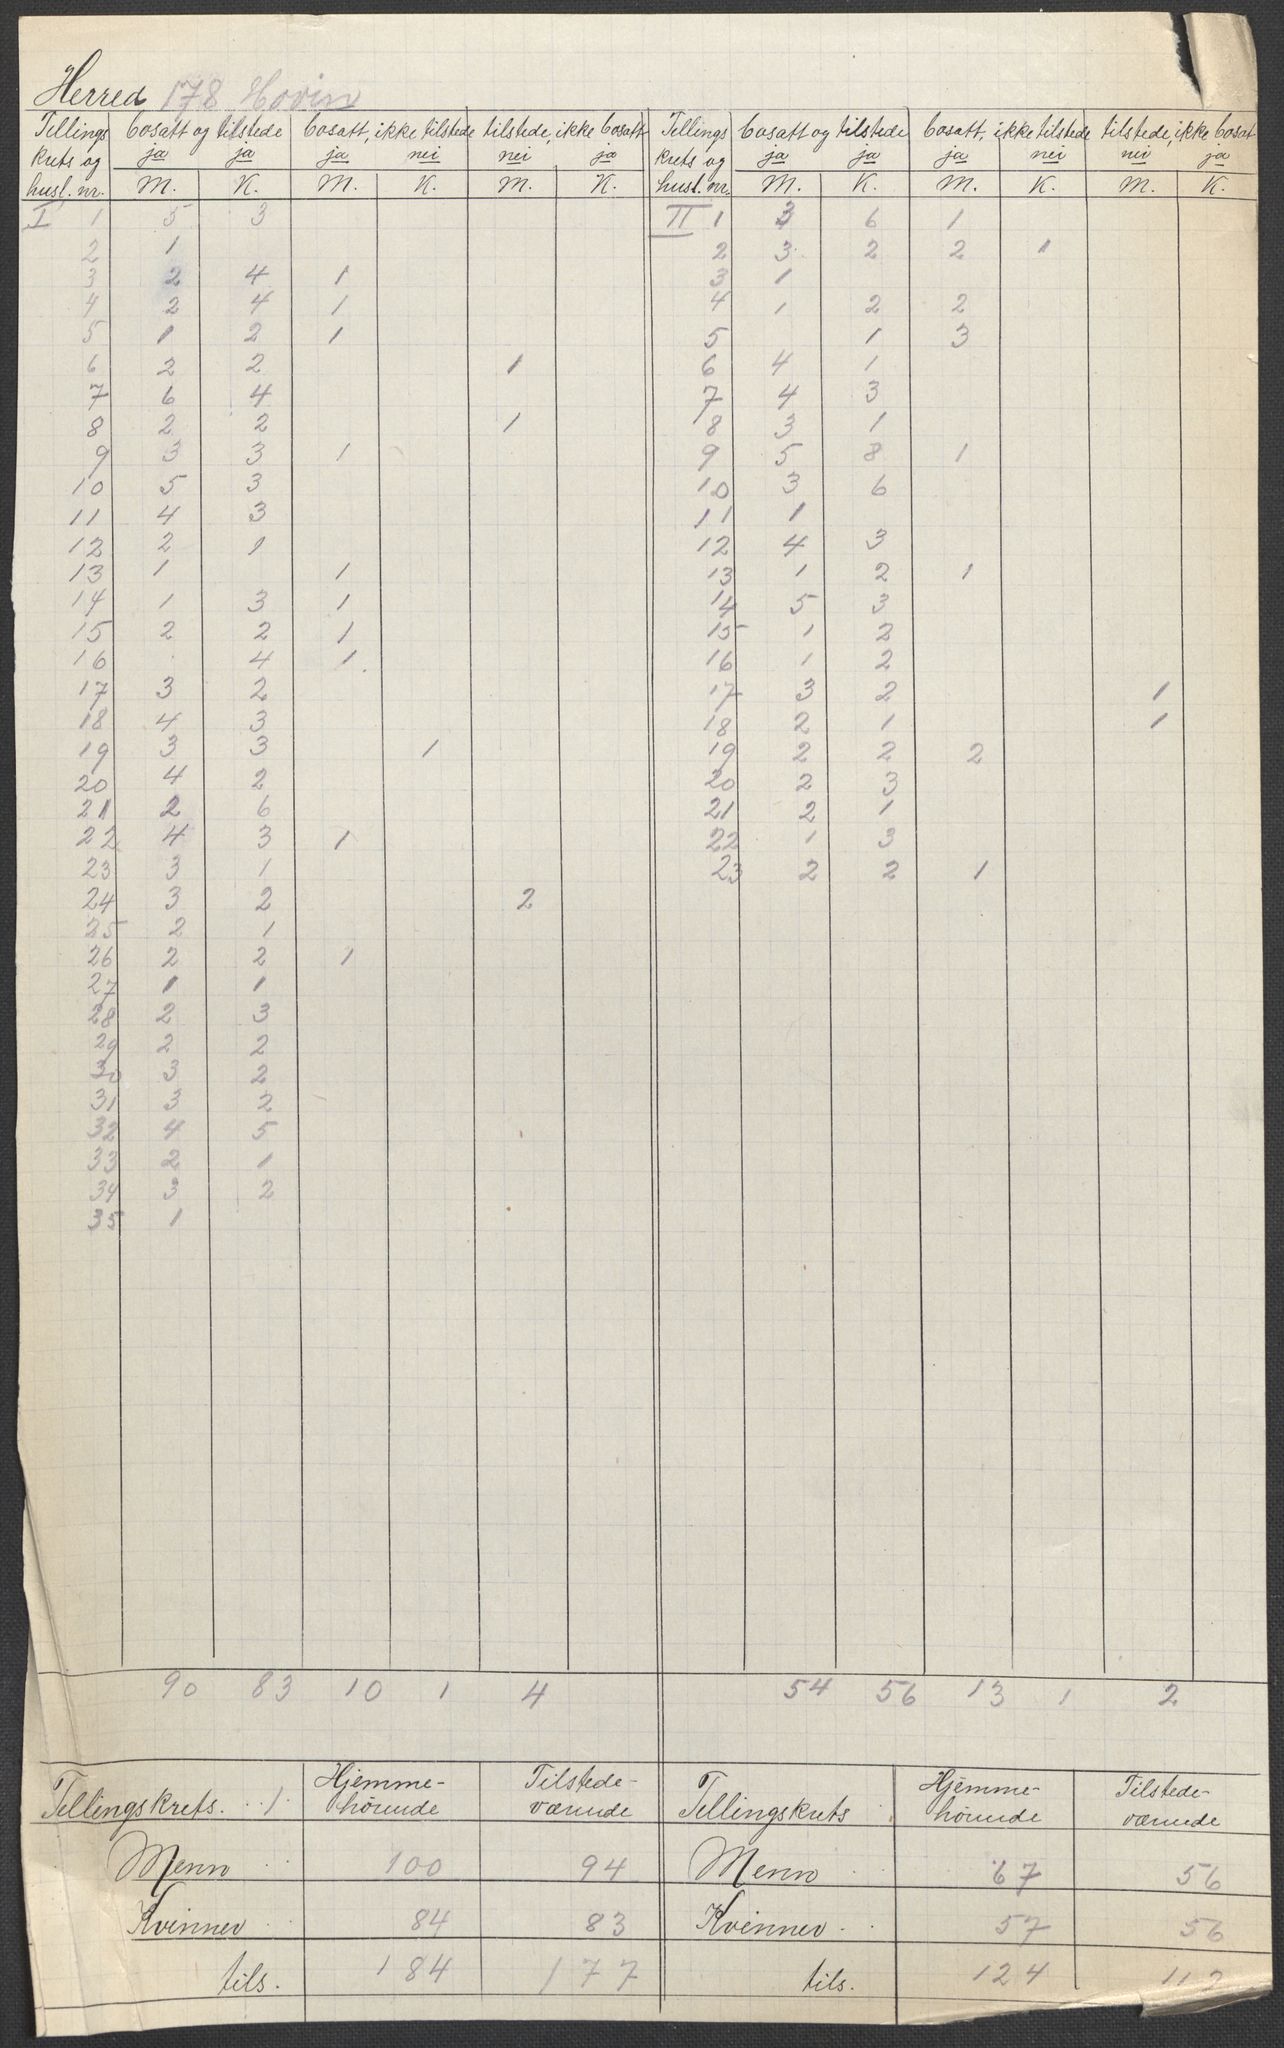 Herred 178 Hovin
Tellings bosatt og tilstede bosatt, ikke tilstede tilstede, ikke bosatt Tellings bosatt og tilstede bosatt, ikke tilstede tilstede, ikke bosatt
krets og ja ja ja nei nei ja krets og ja ja ja nei nei ja
husl. nr. M. K. M. K. M. K. husl. nr. M. K. M. K. M. K.
I 1 5 3 II 1 3 6 1
2 1 2 3 2 2 1
3 2 4 1 3 1
4 2 4 1 4 1 2 2
5 1 2 1 5 1 3
6 2 2 1 6 4 1
7 6 4 7 4 3
8 2 2 1 8 3 1
9 3 3 1 9 5 8 1
10 5 3 10 3 6
11 4 3 11 1
12 2 1 12 4 3
13 1 1 13 1 2 1
14 1 3 1 14 5 3
15 2 2 1 15 1 2
16 4 1 16 1 2
17 3 2 17 3 2 1
18 4 3 18 2 1 1
19 3 3 1 19 2 2 2
20 4 2 20 2 3
21 2 6 21 2 1
22 4 3 1 22 1 3
23 3 1 23 2 2 1
24 3 2 2
25 2 1
26 2 2 1
27 1 1
28 2 3
29 2 2
30 3 2
31 3 2
32 4 5
33 2 1
34 3 2
35 1
90 83 10 1 4 54 56 13 1 2
Tellingskrets. 1. Hjemme- Tilstede- Tellingskrets Hjemme- Tilstede-
hörende værende hörende værende
Menn 100 94 Menn 67 56
Kvinner 84 83 Kvinner 57 56
tils. 184 177 tils. 124 112